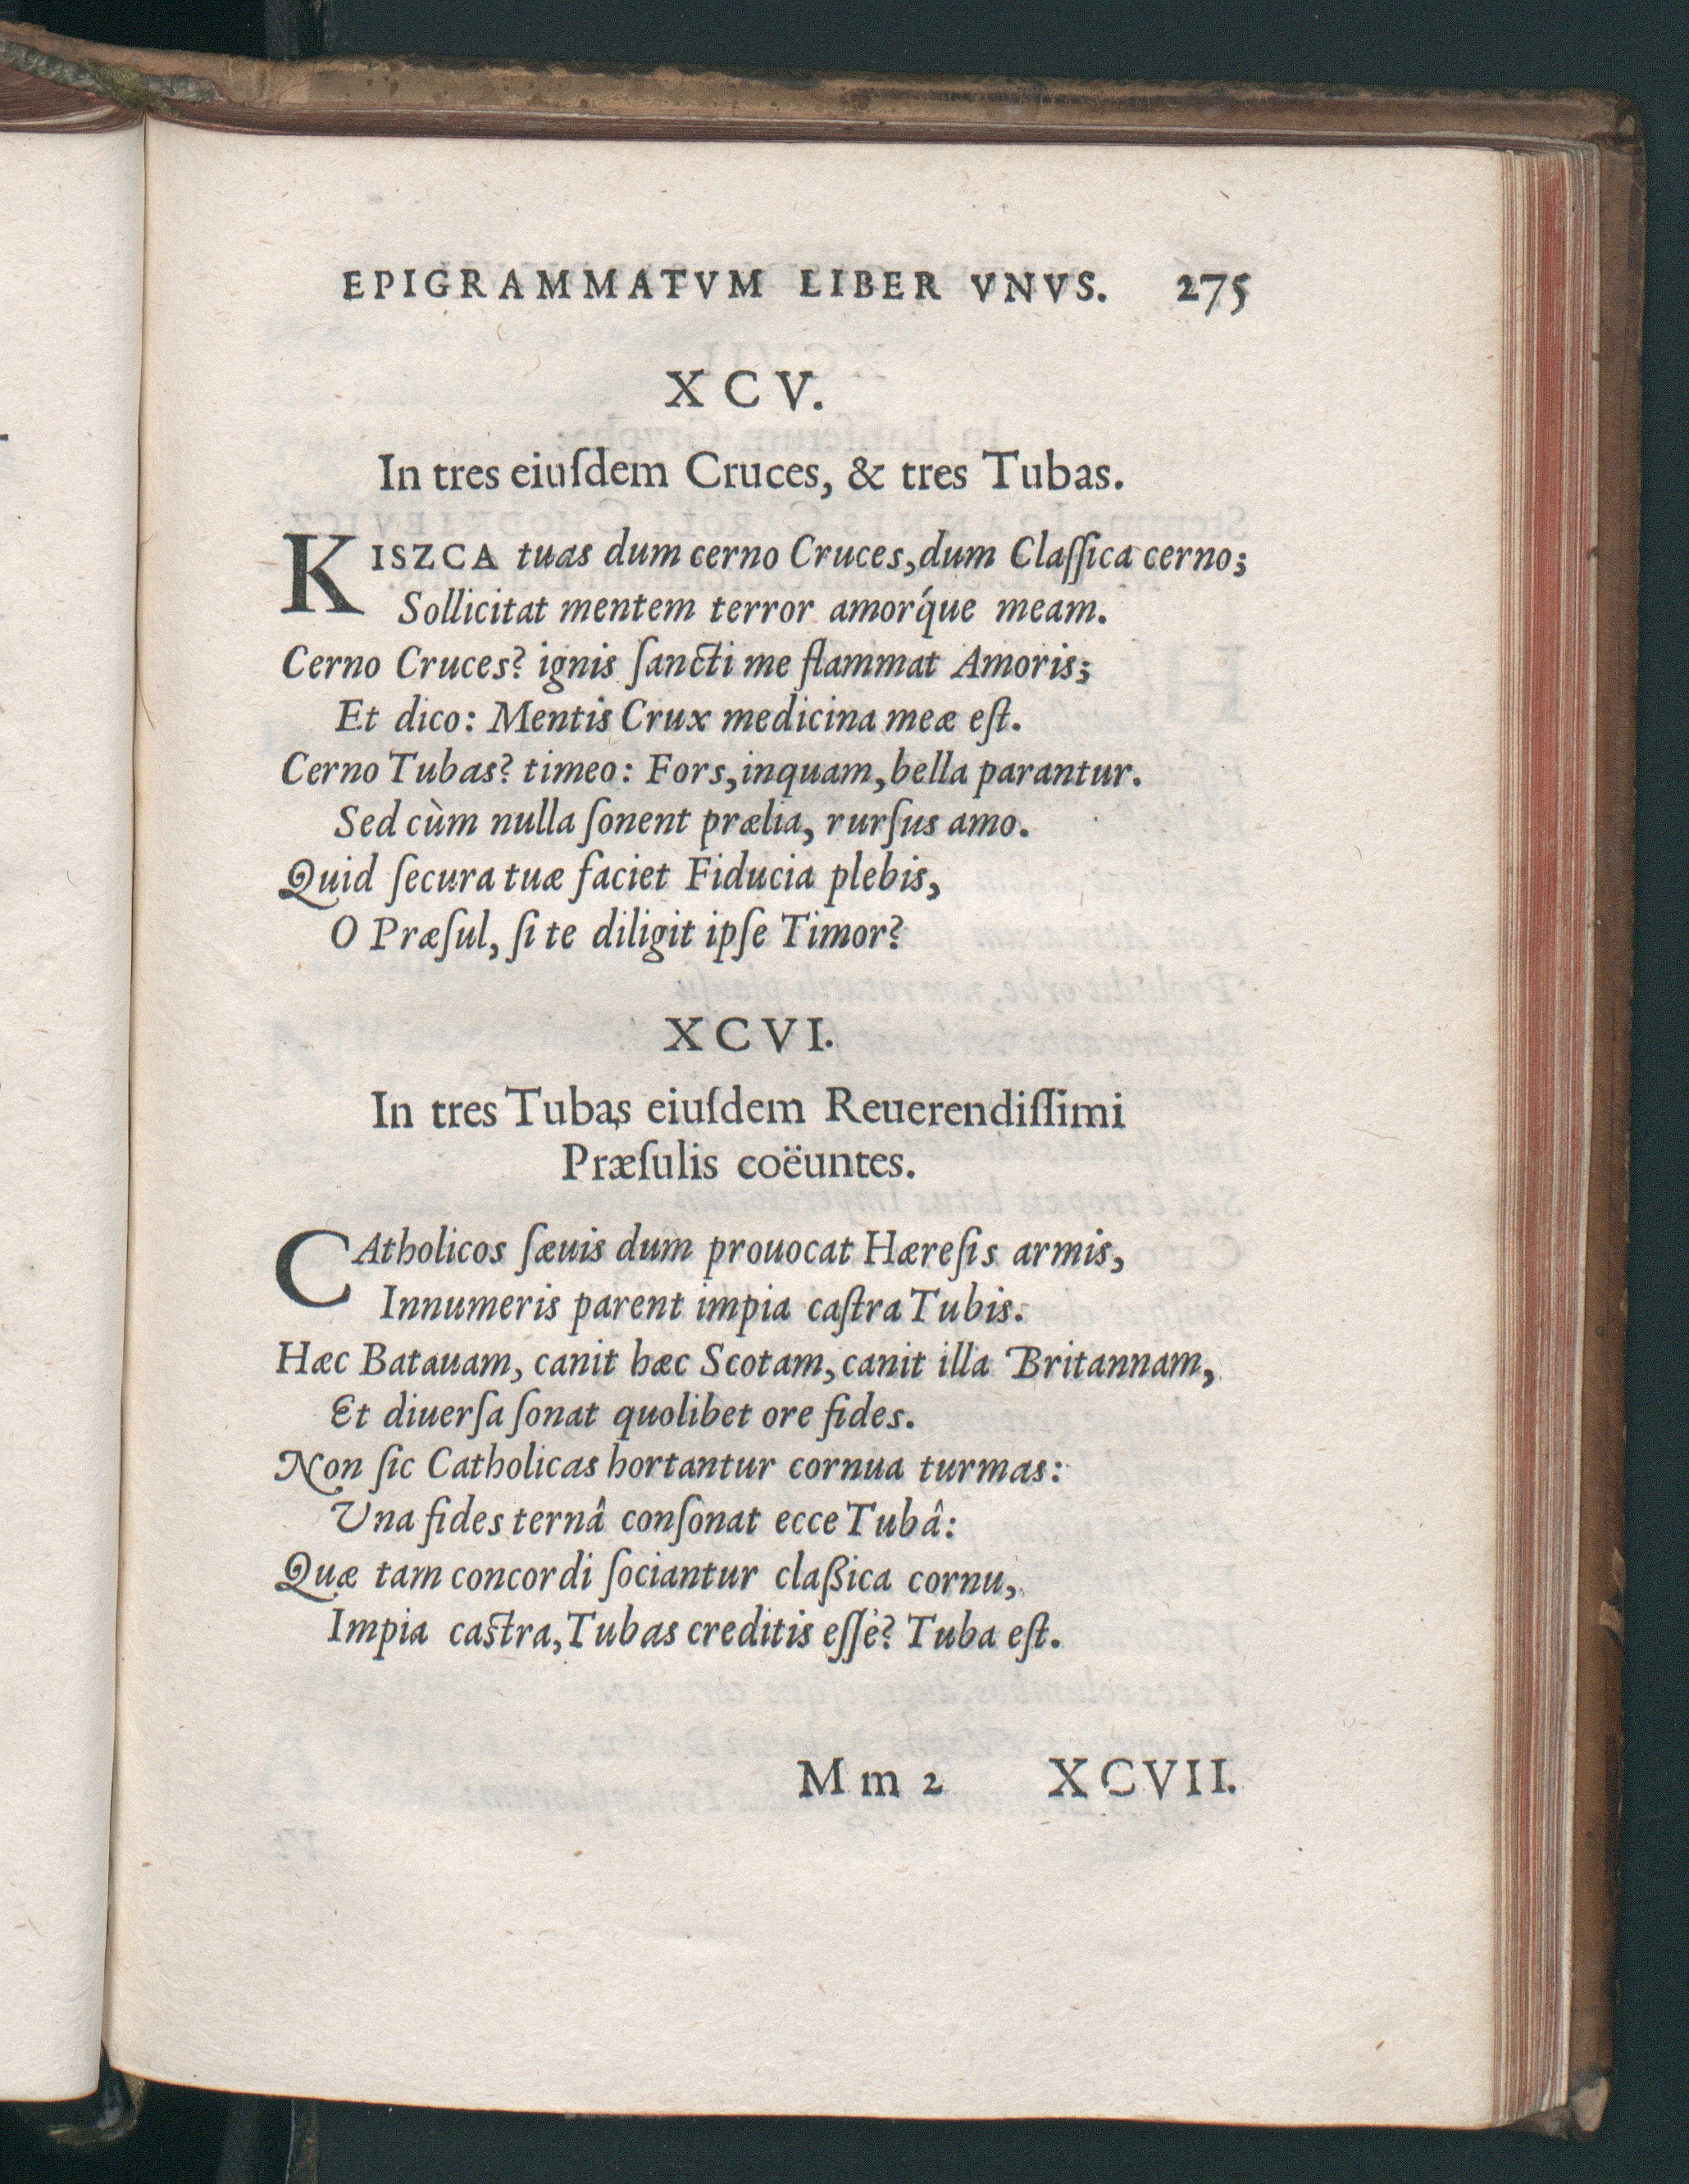 EPIGRAMMATVM LIBER VNVS. 275
XCV.
In tres eiuſdem Cruces, & tres Tubas.
KISZCA tuas dum cerno Cruces, dum Claſſica cerno;
Sollicitat mentem terror amorq́ue meam.
Cerno Cruces? ignis ſancti me flammat Amoris;
Et dico: Mentis Crux medicina meæ eſt.
Cerno Tubas? timeo: Fors, inquam, bella parantur.
Sed cùm nulla ſonent prælia, rurſus amo.
Quid ſecura tuæ faciet Fiducia plebis,
O Præſul, ſi te diligit ipſe Timor?
XCVI.
In tres Tubas eiuſdem Reuerendiſſimi
Præſulis coëuntes.
CAtholicos ſæuis dum prouocat Hæreſis armis,
Innumeris parent impia caſtra Tubis.
Hæc Batauam, canit hæc Scotam, canit illa Britannam,
Et diuerſa ſonat quolibet ore fides.
Non ſic Catholicas hortantur cornua turmas:
Una fides ternâ conſonat ecce Tubâ:
Quæ tam concordi ſociantur claßica cornu,
Impia castra, Tubas creditis eſſe? Tuba eſt.
Mm 2 XCVII.